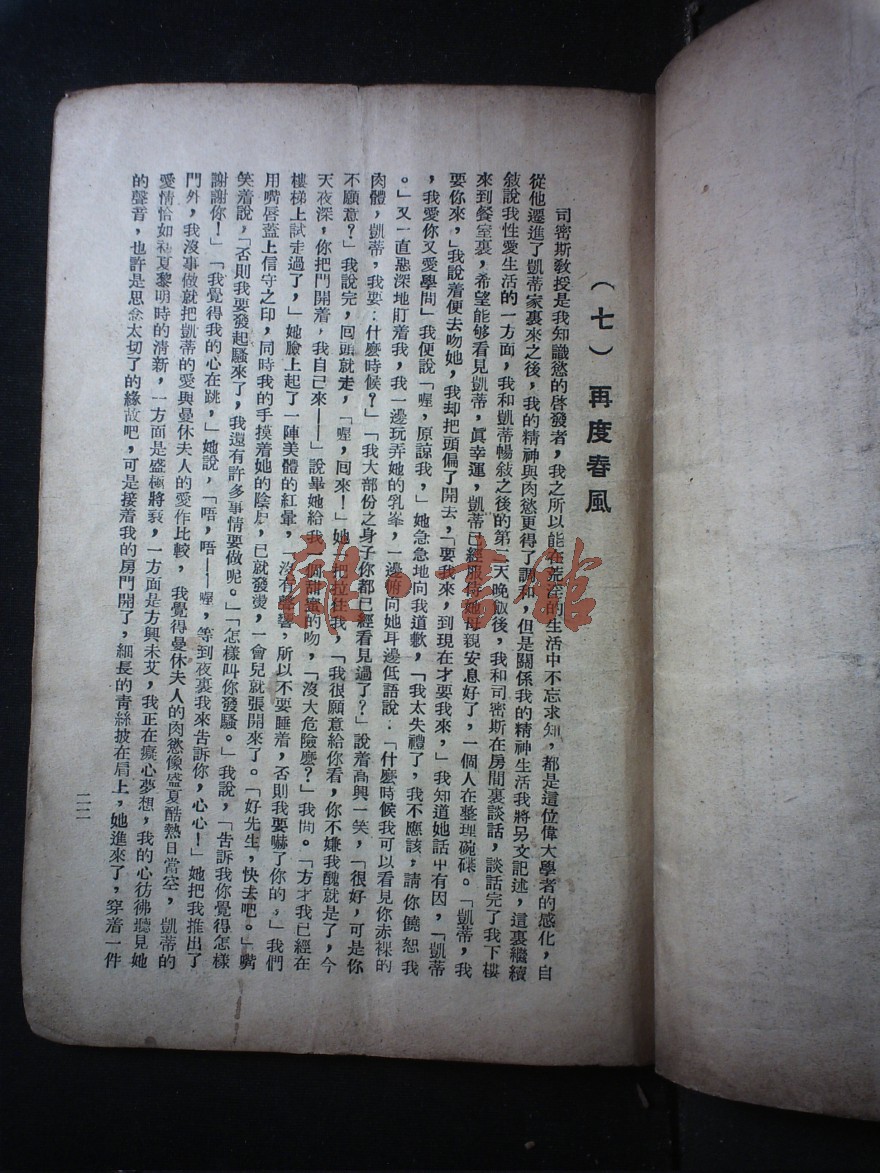 （七）　再度春風
司密斯教授是我知識慾的啓發者，我之所以能在荒淫的生活中不忘求知，都是這位偉大學者的感化，自
從他遷進了凱蒂家裏來之後，我的精神與肉慾更得了調和，但是關係我的精神生活我將另文記述，這裏繼續
敍說我性愛生活的一方面，我和凱蒂暢敍之後的第二天晚飯後，我和司密斯在房間裏談話，談話完了我下樓
來到餐室裏，希望能够看見凱蒂，眞幸運，凱蒂已經服侍她母親安息好了，一個人在整理碗碟。「凱蒂，我
要你來，」我說着便去吻她，我却把頭偏了開去，「要我來，到現在才要我來，」我知道她話中有因，「凱蒂
，我愛你又愛學問」我便說「喔，原諒我，」她急急地向我道歉，「我太失禮了，我不應該，請你饒恕我
。」又一直惡深地盯着我，我一邊玩弄她的乳峯，一邊俯向她耳邊低語說：「什麼時候我可以看見你赤裸的
肉體，凱蒂，我要：什麼時候？」「我大部份之身子你都已經看見過了？」說着高興一笑，「很好，可是你
不願意？」我說完，回頭就走，「喔，回來！」她一把拉住我，「我很願意給你看，你不嫌我醜就是了，今
天夜深，你把門開着，我自己來——」說畢她給我一個甜蜜的吻，「沒大危險麽？」我問。「方才我已經在
樓梯上試走過了，」她臉上起了一陣美體的紅暈，「沒有聲響，所以不要睡着，否則我要嚇了你的，」我們
用嘴唇蓋上信守之印，同時我的手摸着她的陰戶，已就發燙，一會兒就張開來了。「好先生，快去吧。」嘴
笑着說，「否則我要發起騷來了，我還有許多事情要做呢。」「怎樣叫你發騷。」我說，「告訴我你覺得怎樣
謝謝你！」「我覺得我的心在跳，」她說，「唔，唔——喔，等到夜裏我來告訴你，心心！」她把我推出了
門外，我沒事做就把凱蒂的愛與曼休夫人的愛作比較，我覺得曼休夫人的肉慾像盛夏酷熱日當空，凱蒂的
愛情恰如初夏黎明時的清新，一方面是盛極將衰，一方面是方興未艾，我正在癡心夢想，我的心彷彿聽見她
的聲音，也許是思念太切了的緣故吧，可是接着我的房門開了，細長的靑絲披在肩上，她進來了，穿着一件
二二
雜·書館